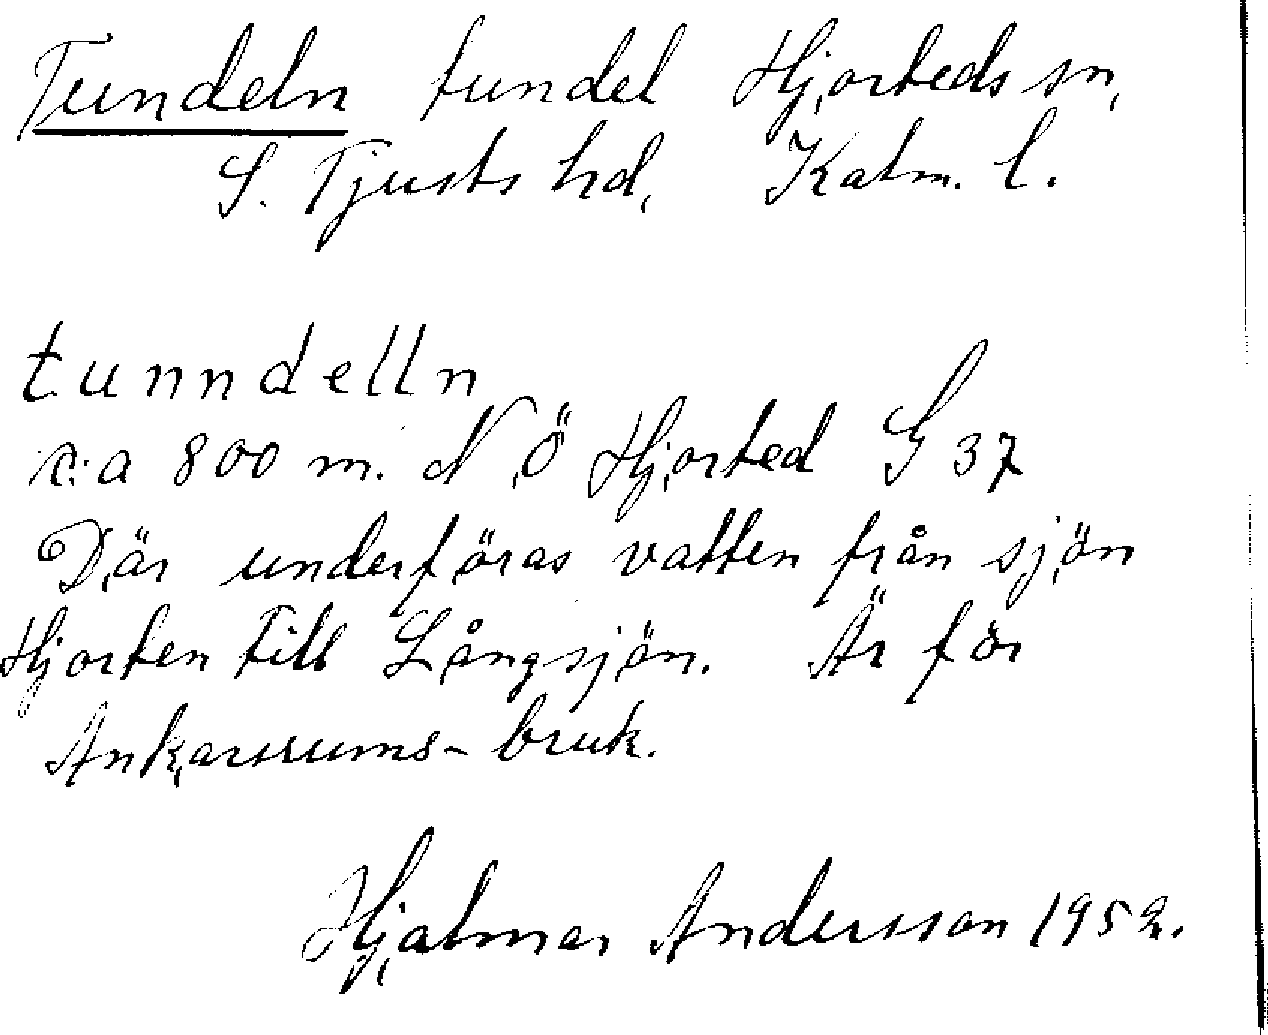 Tundeln tundel Hjorteds sn,
S. Tjusts hd, Kalm. l.
tunndelln
c:a 800 m. N Ö Hjorted G 37
Där underföras vatten från sjön
Hjorten till Långsjön. Är för
Ankarsrums-bruk.
Hjalmar Andersson 1952.